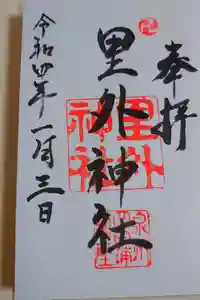 奉拝
里外神社
里外
神社
令和四年一月三日